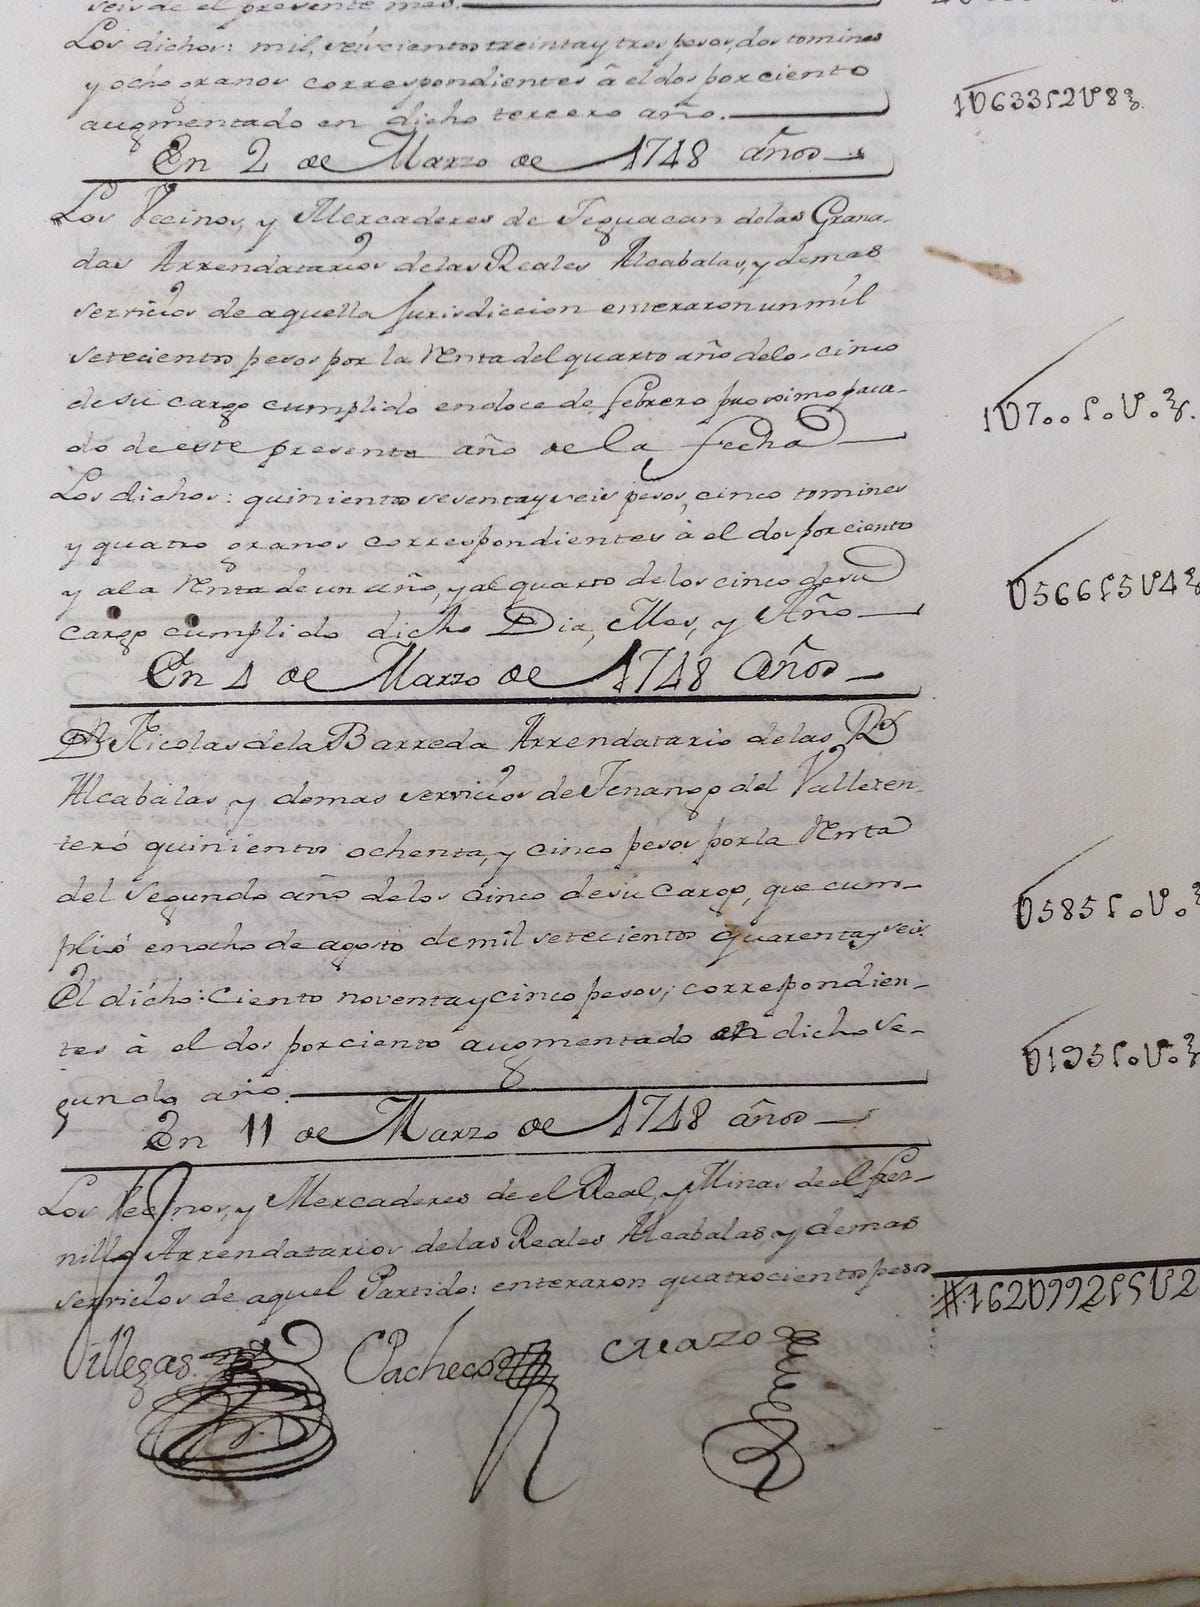 seis de el presente mes.
Los dichos: mil, seiscientos treinta y tres pesos, dos tomines
y ocho granos correspondientes â el dos por ciento
augmentado en dicho tercero año.
1U633ps2U8g.
En 2 de Marzo de 1748 años
Los Vecinos, y Mercaderes de Teguacan de las Grana-
das Arrendatarios de las Reales Alcabalas, y demas
servicios de aquella Jurisdiccion enteraron un mil
setecientos pesos por la Renta del quarto año de los cinco
de su cargo cumplido en doce de febrero proximo pasa-
do de este presente año de la fecha
1U700ps.U.g.
Los dichos: quinientos sesenta y seis pesos, cinco tomines
y quatro granos correspondientes â el dos por ciento
y a la Renta de un año, y al quarto de los cinco de su
cargo cumplido dicho Dia, Mes, y Año
U566ps5U4g
En 4 de Marzo de 1748 años
Dn Nicolas de la Barreda Arrendatario de las Rs
Alcabalas, y demas servicios de Tenango del Valle en-
teró quinientos ochenta, y cinco pesos por la Renta
del segundo año de los cinco de su cargo, que cum-
plió en ocho de agosto de mil setecientos quarenta y seis
U585ps.U.g
El dicho: Ciento noventa y cinco pesos; correspondien-
tes â el dos por ciento augmentado en dicho se-
gundo año.
U195ps.U.g
En 11 de Marzo de 1748 años
Los Vecinos, y Mercaderes de el Real, y Minas de el fres-
nillo Arrendatarios de las Reales Alcabalas, y demas
servicios de aquel Partido: enteraron quatrocientos pesos
#162U992ps5U2
Villegas Pacheco Erazo